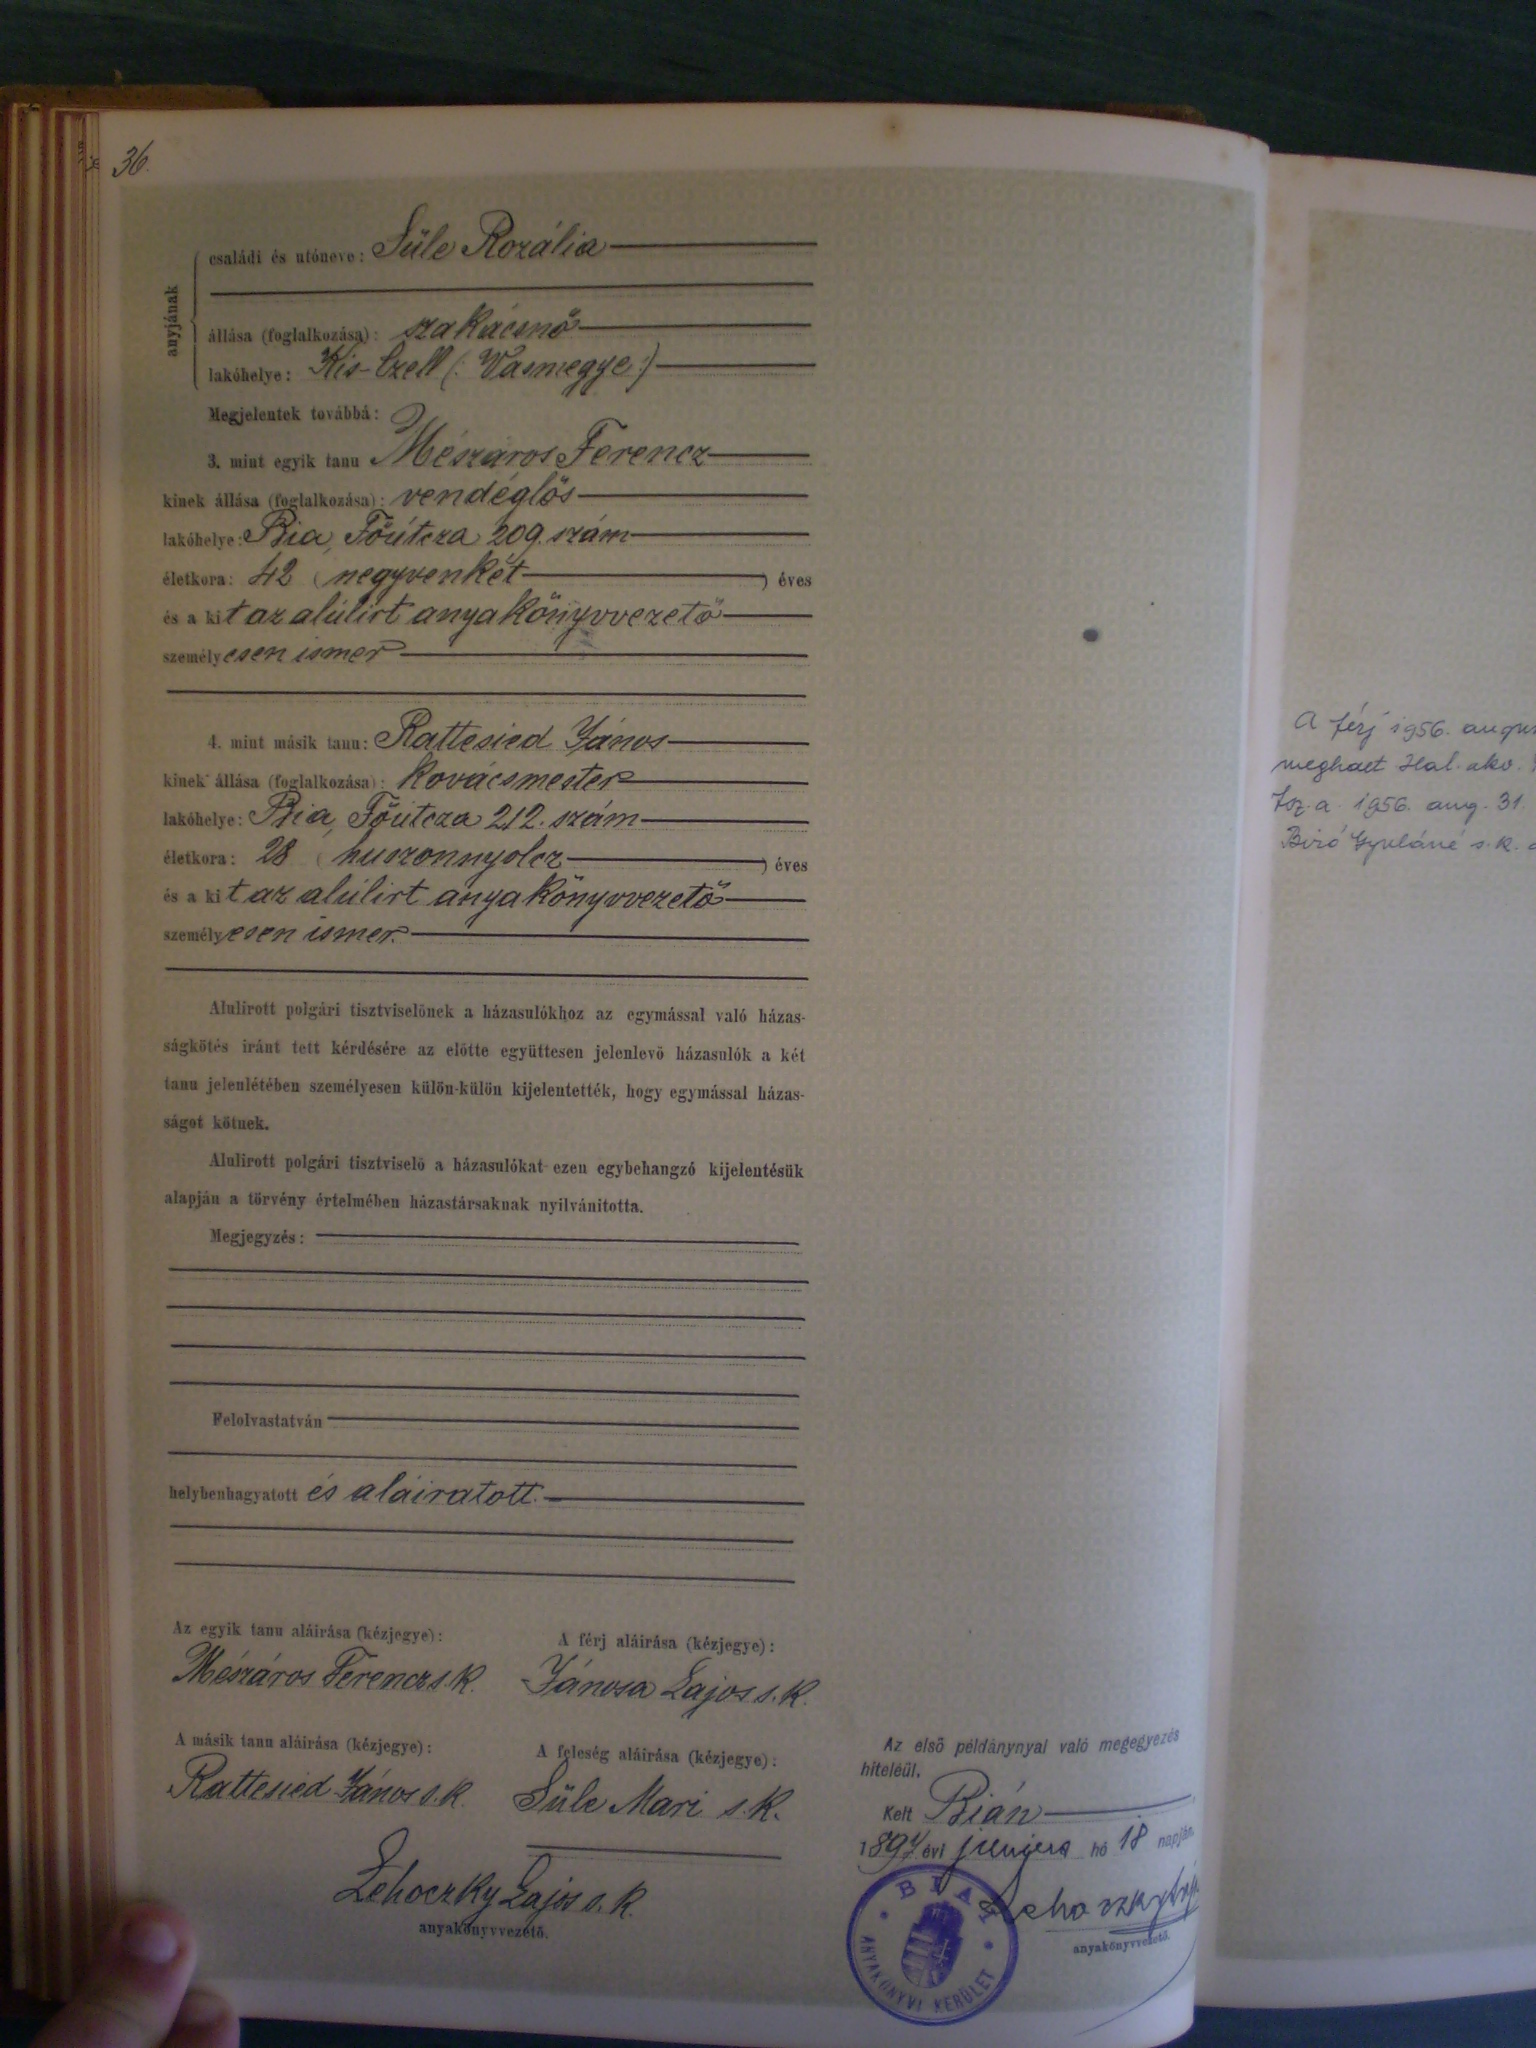 36.
anyjának
családi és utóneve: Süle Rozália
állása (foglalkozása): szakácsnő
lakóhelye: Kis-Czell (: Vasmegye :)
Megjelentek továbbá:
3. mint egyik tanu Mészáros Ferencz
kinek állása (foglalkozása): vendéglős
lakóhelye: Bia, Főútcza 209. szám
életkora: 42 (negyvenkét) éves
és a kit az alúlírt anyakönyvvezető
személyesen ismer
4. mint másik tanu: Rattesied János
kinek állása (foglalkozása): kovácsmester
lakóhelye: Bia, Főútcza 212. szám
életkora: 28 (huszonnyolcz) éves
és a kit az alúlírt anyakönyvvezető
személyesen ismer.
Alulírott polgári tisztviselőnek a házasulókhoz az egymással való házas-
ságkötés iránt tett kérdésére az előtte együttesen jelenlevő házasulók a két
tanu jelenlétében személyesen külön-külön kijelentették, hogy egymással házas-
ságot kötnek.
Alulirott polgári tisztviselő a házasulókat ezen egybehangzó kijelentésük
alapján a törvény értelmében házastársaknak nyilvánitotta.
Megjegyzés:
Felolvastatván
helybenhagyatott és aláiratott.
Az egyik tanu aláirása (kézjegye):
Mészáros Ferencz s. k.
A férj aláirása (kézjegye):
Jánosa Lajos s. k.
A másik tanu aláirása (kézjegye):
Rattesied János s. k.
A feleség aláirása (kézjegye):
Süle Mari s. k.
Lehoczky Lajos s. k.
anyakönyvvezető.
Az első példánynyal való megegyezés
hiteléül.
Kelt Bián
1897 évi junius hó 18 napján
Lehoczky Lajos
anyakönyvvezető.
BIAI
ANYAKÖNYVI KERÜLET
A férj 1956. augus
meghalt Hal. akv.
fsz. a. 1956. aug. 31.
Biró Gyuláné s. k.